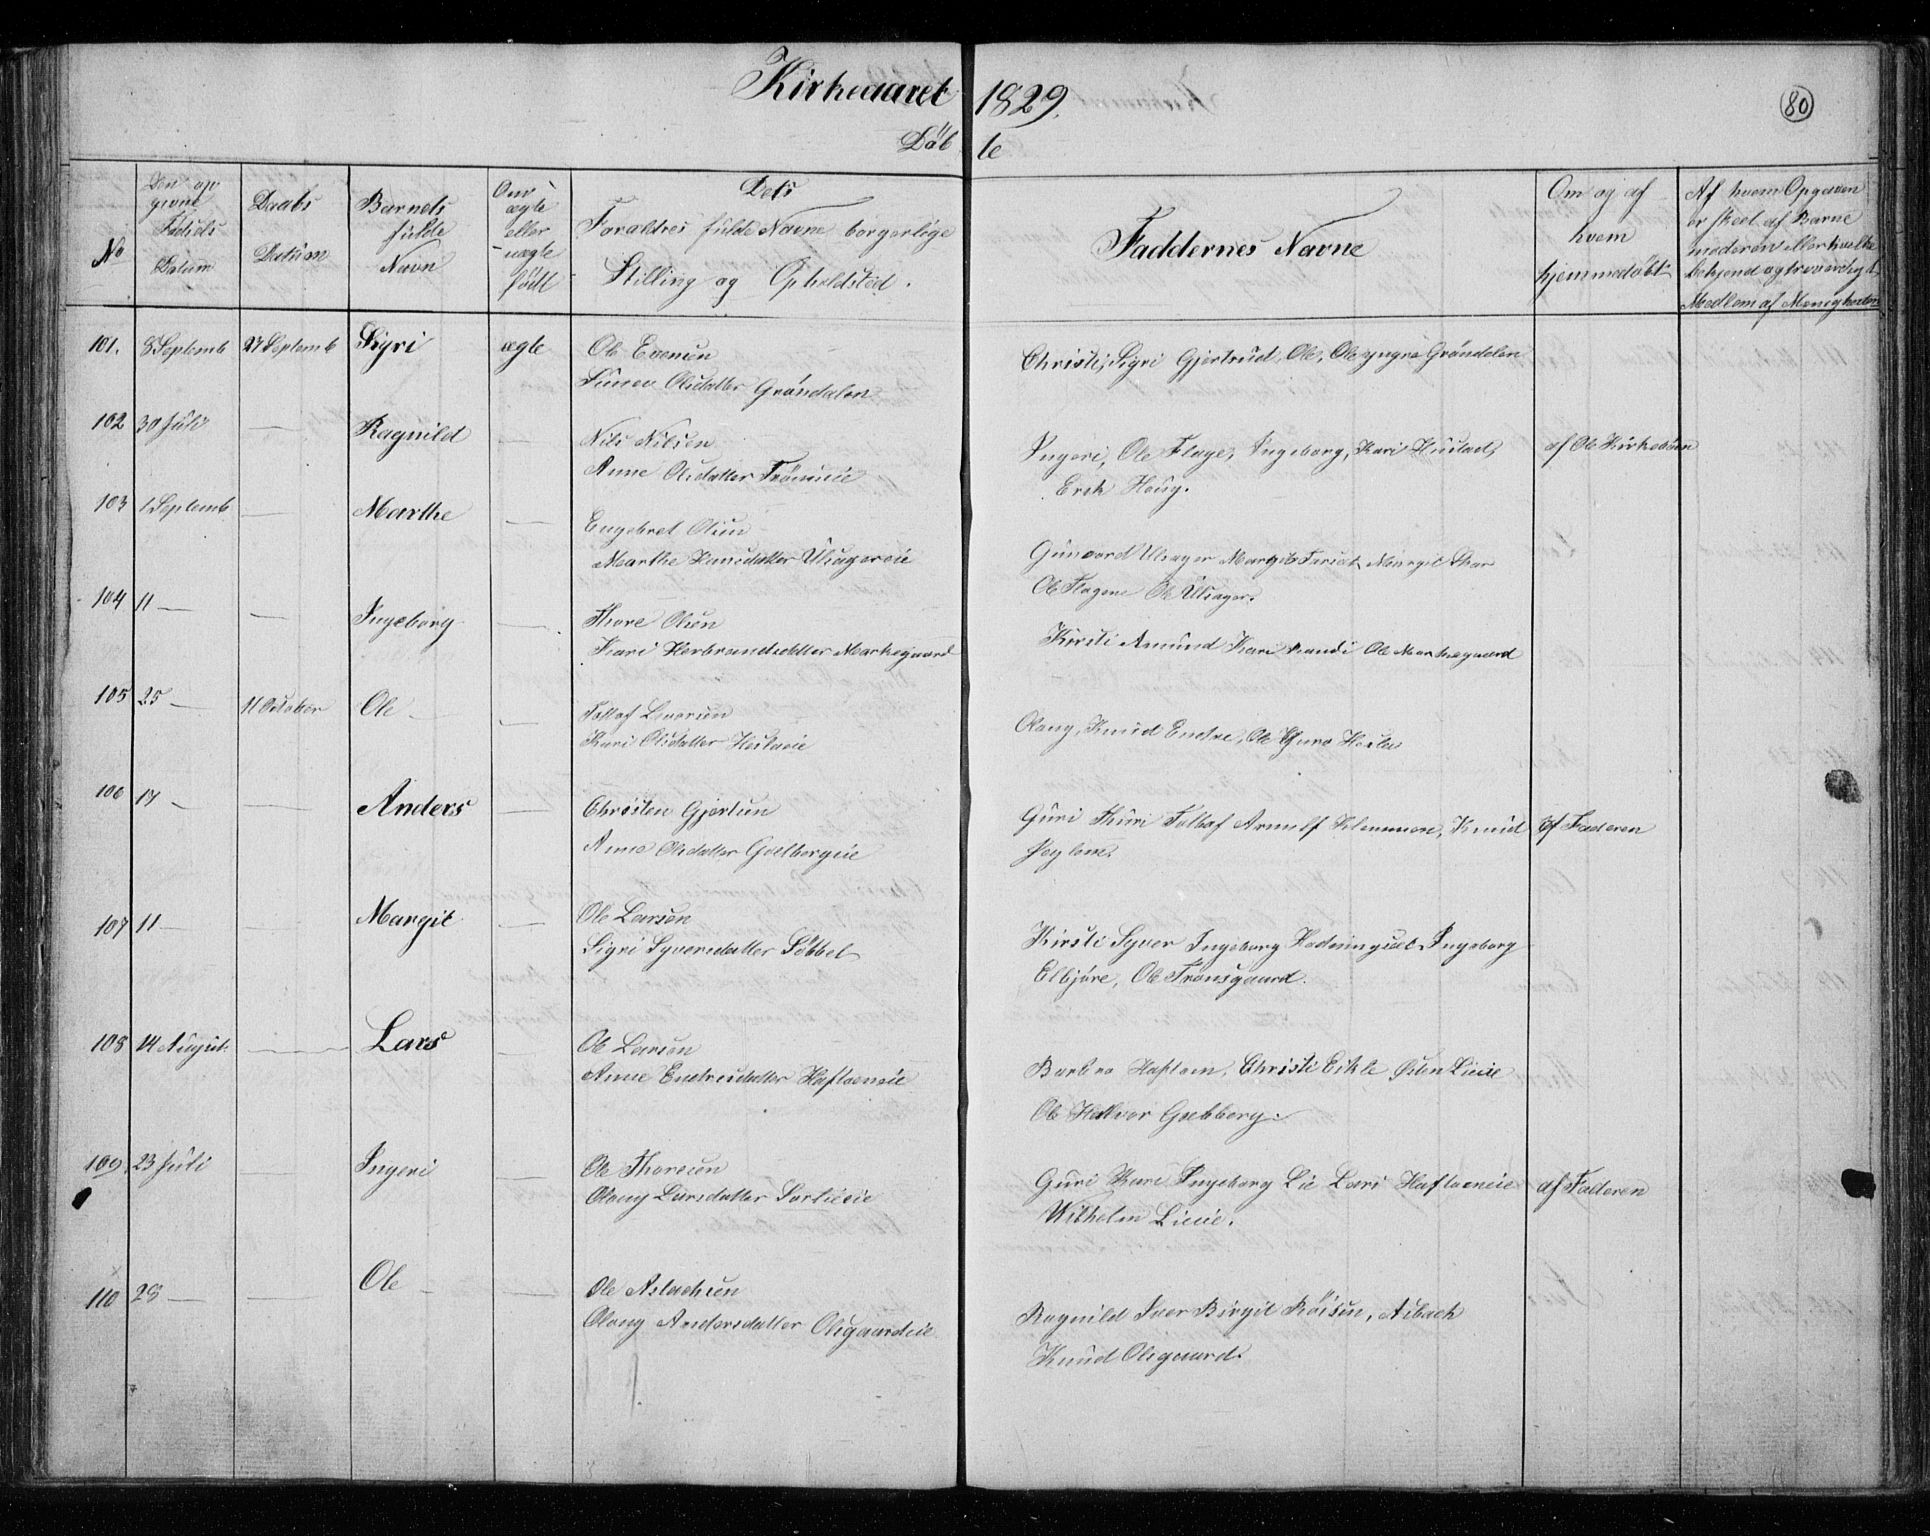 Kirkeaaret 1829.
80
Døbte
No
Den op
givne
Fødsels
Datum
Daabs
Datum
Barnets
fulde
Navn
Om
ægte
eller
uægte
født
Dets
Foraldres fulde Navne borgerlige
Stilling og Opholdsted.
Faddernes Navne
Om og af
hvem
hjemmedøbt
Af hvem Opgaven
er skeet af Barne
moderen eller hvilke
bekjend og troværdigt
Medlem af Menigheden
101. 8 Septemb 27 Septemb Sigri ægte Ole Evensen
Olsdatter Grøndalen
Christi, Sigri Gjertrud, Ole, Ole yngre Grøndalen
102 30 Juli — Ragnild — Nils Nilsen
Anne Olsdatter
Ingeri, Ole Flage, Ingeborg, Kari Hustad, af Ole Kirkebøen
Erik Houg.
103 1 Septemb — Marthe — Engebret Olsen
Marthe Hansdatter Ulsagereie
Gunvord Ulsager Margit Margit Skar
Ole Flagene Ole Ulsager.
104 11 — — Ingeborg — Thore Olsen
Kari Herbrandsdatter Markegaard
Kirsti Amund Kari Randi Ole Markegaard
105 25 — 11 October Ole — — Tollef Iversen
Kari Olsdatter
Olaug, Knud Endre, Ole Guro
106 17 — — Anders — Christen Gjertsen
Anne Olsdatter Golbergeie
Guri Thuri Tollef Arnulf Klemmen, Knud af Faderen
107 11 — — Margit — Ole Larsen
Sigri Syversdatter Søbbel
Kirsti Syver Ingeborg Ingeborg
Elbjøre, Ole Trønsgaard.
108 14 August. — Lars — Ole Larsen
Anne Endresdatter Haftoneie
Barbro Haftorn, Christi Eikle Østen Lieeie
Ole Halvor Golberg.
109. 23 Juli — Ingeri — Ole Thoresen
Olaug Larsdatter
Guri Kari Ingeborg Lie Lars Haftoneie af Faderen
Wilhelm Lieeie.
110 28 — — Ole — — Ole Aslachsen
Olaug Andersdatter Olsgaardeie
Ragnild Iver Birgit Røisen, Aslach
Knud Olsgaard.